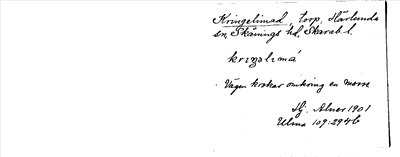 Kringelimad, torp, Härlunda
sn, Skånings hd, Skarab. l.
kriŋəlimá
Vägen krokar omkring en mosse
Hj. Alner 1901
Ulma 109:294 b